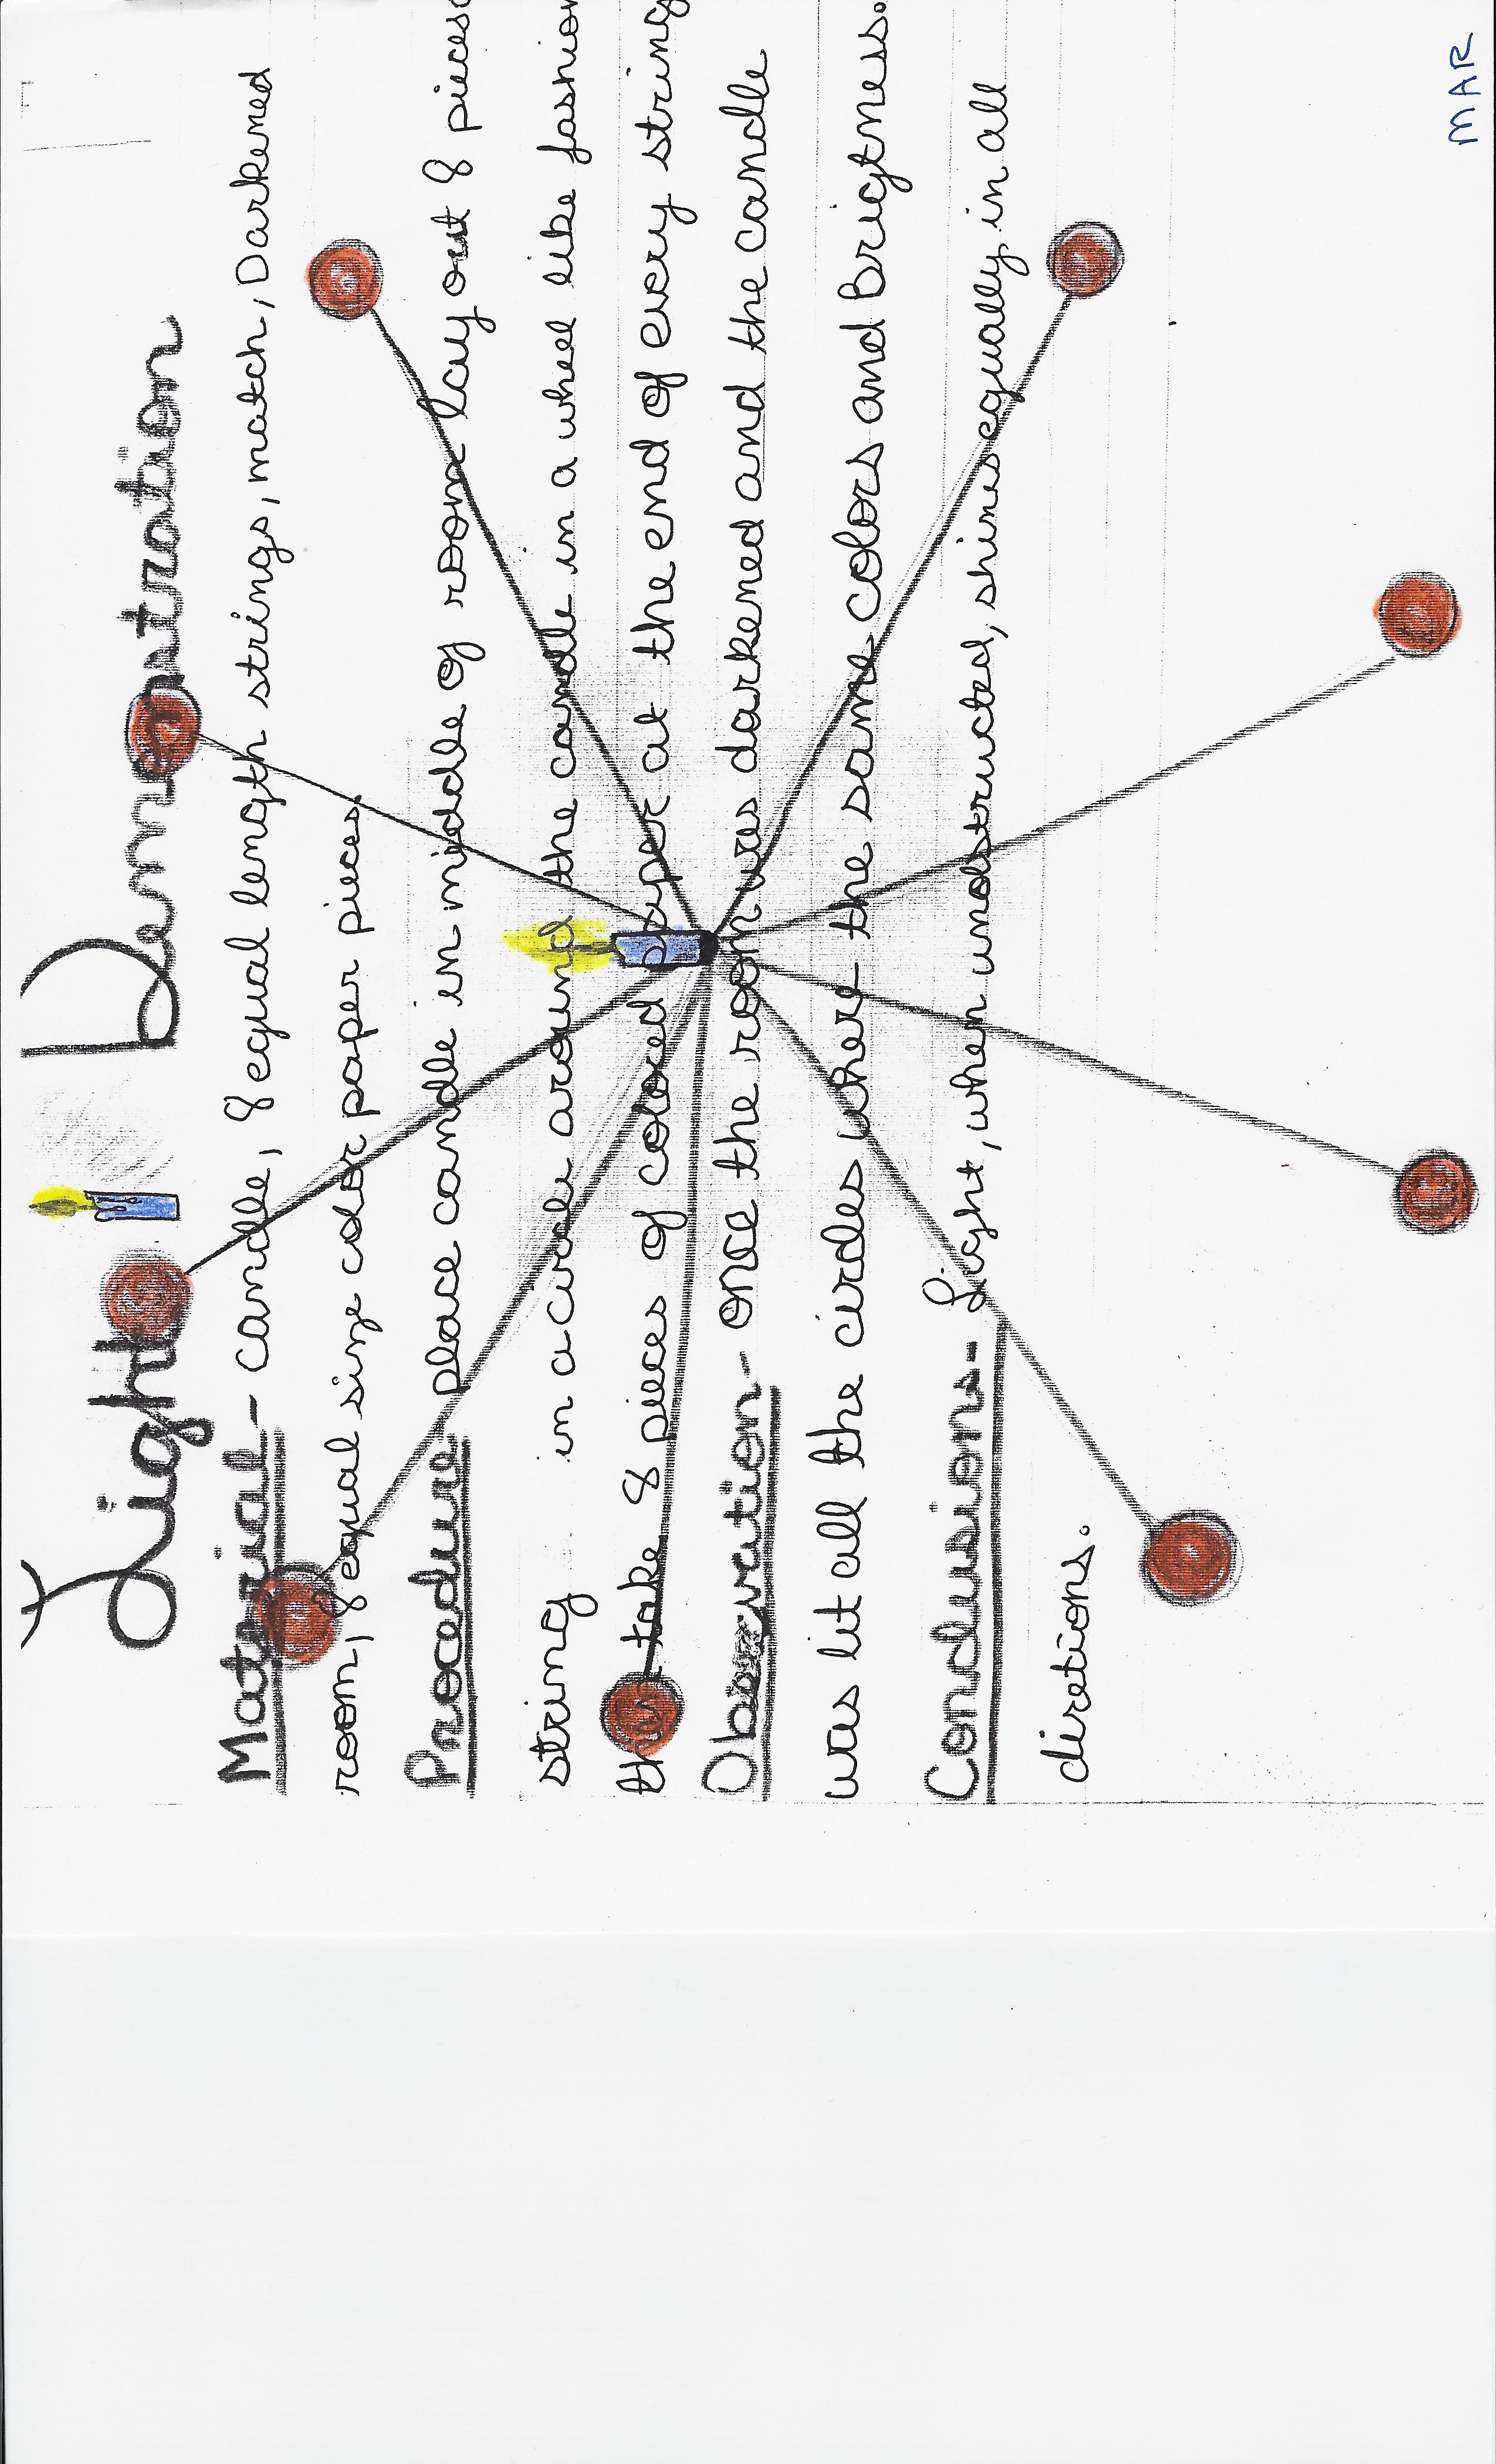 Light Demonstration
Material - candle, 8 equal length strings, match, Darkened
room, 8 equal size color paper pieces.
Procedure place candle in middle of room lay out 8 pieces
string in a circle around the candle in a wheel like fashion
then take 8 pieces of colored paper at the end of every string
Observation - once the room was darkened and the candle
was lit all the circles where the same colors and Brigtness.
Conclusions - Light, when unobstructed, shines equally in all
diretions.
MAR